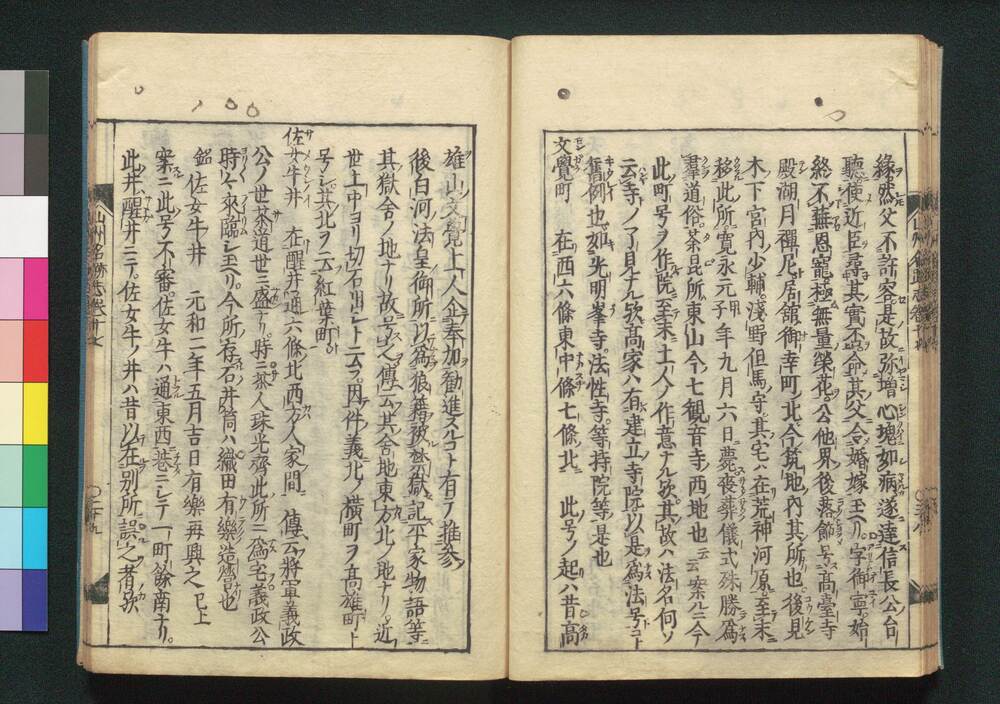 縁然父不許容是故弥増心塊如病遂達信長公台
聽使近臣尋其實否命其父令婚嫁玉フ字御寧始
終不蕪恩寵極無量榮花公他界後落飾号高臺寺
殿湖月禪尼居館御幸町北今筑地内其所也後見
木下宮内少輔淺野但馬守其宅ハ在荒神河原至末
移此所寛永元甲子年九月六日薨喪葬儀式殊勝為
羣道俗荼毘所東山今七観音寺西地也云云案ルニ今
此町号ヲ作院至末土人ノ作意ナル欤其故ハ法名何ソ
云寺ノ了見ナル欤高家ハ有建立寺院以是為法号コト
舊例也如光明峯寺法性寺等持院等是也
文覺町 在西六條東中條七條北 此号ノ起ハ昔高
雄山文覺上人企奉加勧進スルコト有テ推参
後白河法皇御所以為狼籍被禁獄記平家物語等
其獄舎ノ地ナリ故号之傳云其舎地東方北ノ地ナリ近
世土中ヨリ切石出ルト云フ因件義北ノ横町ヲ高雄町ト
号シ其北ヲ云紅葉町
佐女牛井 在醒井通六條北西方人家間 傳云將軍義政
公ノ世茶道世ニ盛ナリ時ニ茶人珠光齊此所ニ為宅義政公
時々來臨シ玉ヘリ今所存石井筒ハ織田有樂造營也
銘 佐女牛井 元和二年五月吉日有樂再興之已上
案ニ此号不審佐女牛ハ通東西巷ニシテ一町餘南ナリ
此井ハ醒井ニテ佐女牛ノ井ハ昔以在別所誤之者欤
山州名跡志巻十七